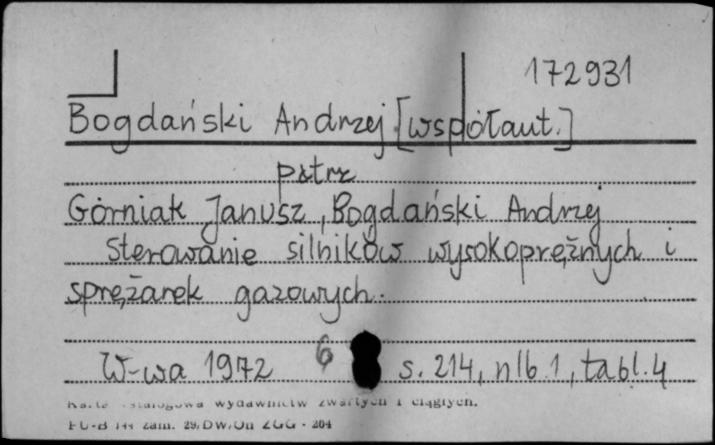 172931
Bogdański Andrzej [współaut.]
patrz
Górniak Janusz, Bogdański Andrzej
Sterowanie silników wysokoprężnych i
sprężarek gazowych.
W-wa 1972 6 s. 214, nlb. 1, tabl. 4
wydawnictw zwartych i ciągłych.
zam. 29/DW/Un ZGG - 204